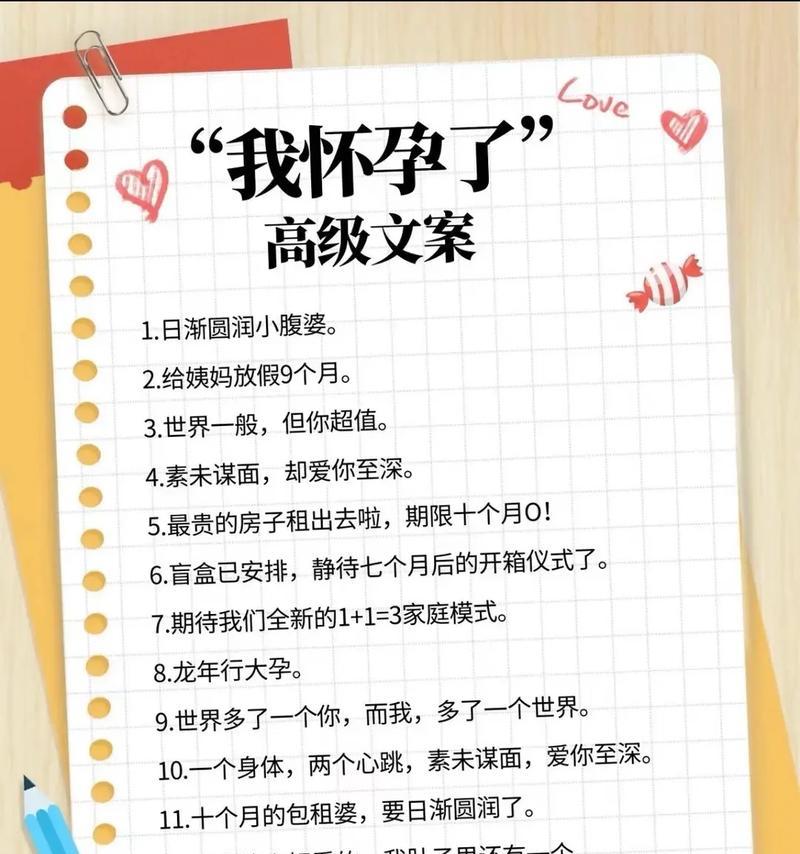 Love
“我怀孕了”
高级文案
1.日渐圆润小腹婆。
2.给姨妈放假9个月。
3.世界一般，但你超值。
4.素未谋面，却爱你至深。
5.最贵的房子租出去啦，期限十个月O！
6.盲盒已安排，静待七个月后的开箱仪式了。
7.期待我们全新的1+1=3家庭模式。
8.龙年行大孕。
9.世界多了一个你，而我，多了一个世界。
10.一个身体，两个心跳，素未谋面，爱你至深。
11.十个月的包租婆，要日渐圆润了。
我肚子里还有一个